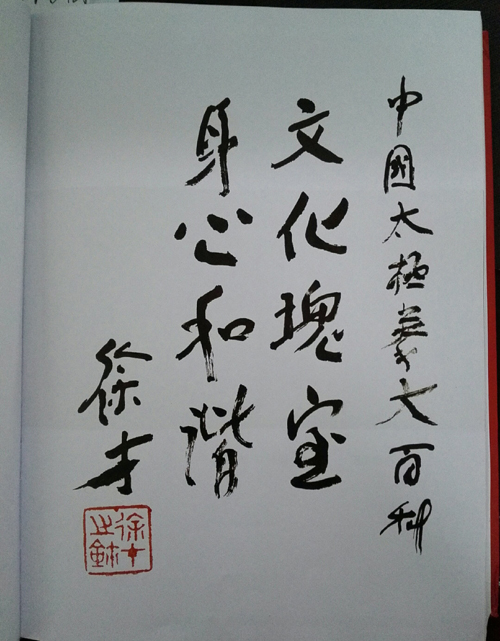 中國太极拳大百科
文化瑰宝
身心和谐
徐才
徐才之鉥